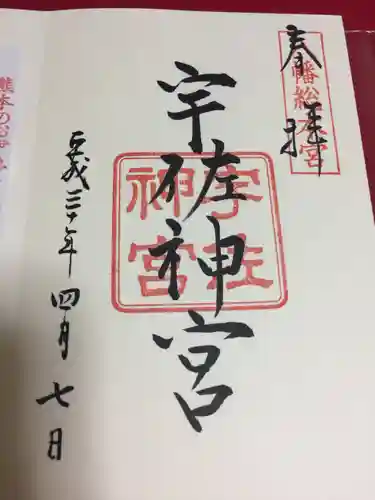 奉拝
八幡総本宮
宇佐神宮
宇佐
神宮
平成三十年四月七日